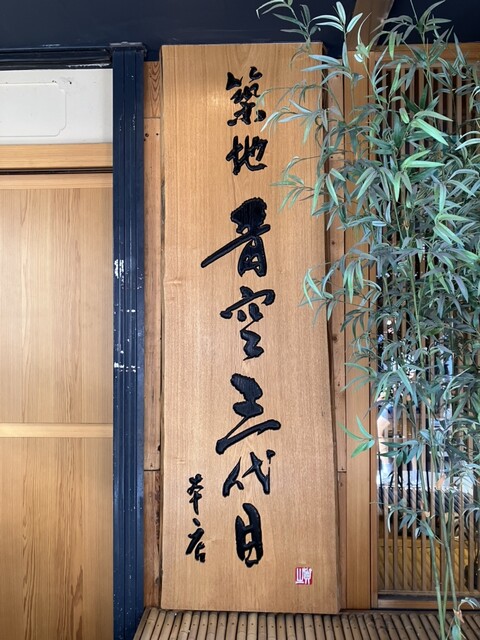 築地
青空三代目
本店